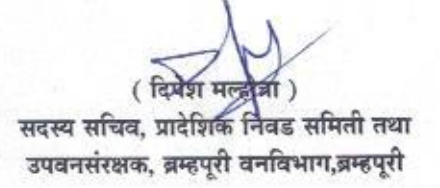 ( दिपेश मल्होत्रा )
सदस्य सचिव, प्रादेशिक निवड समिती तथा
उपवनसंरक्षक, ब्रम्हपूरी वनविभाग,ब्रम्हपूरी